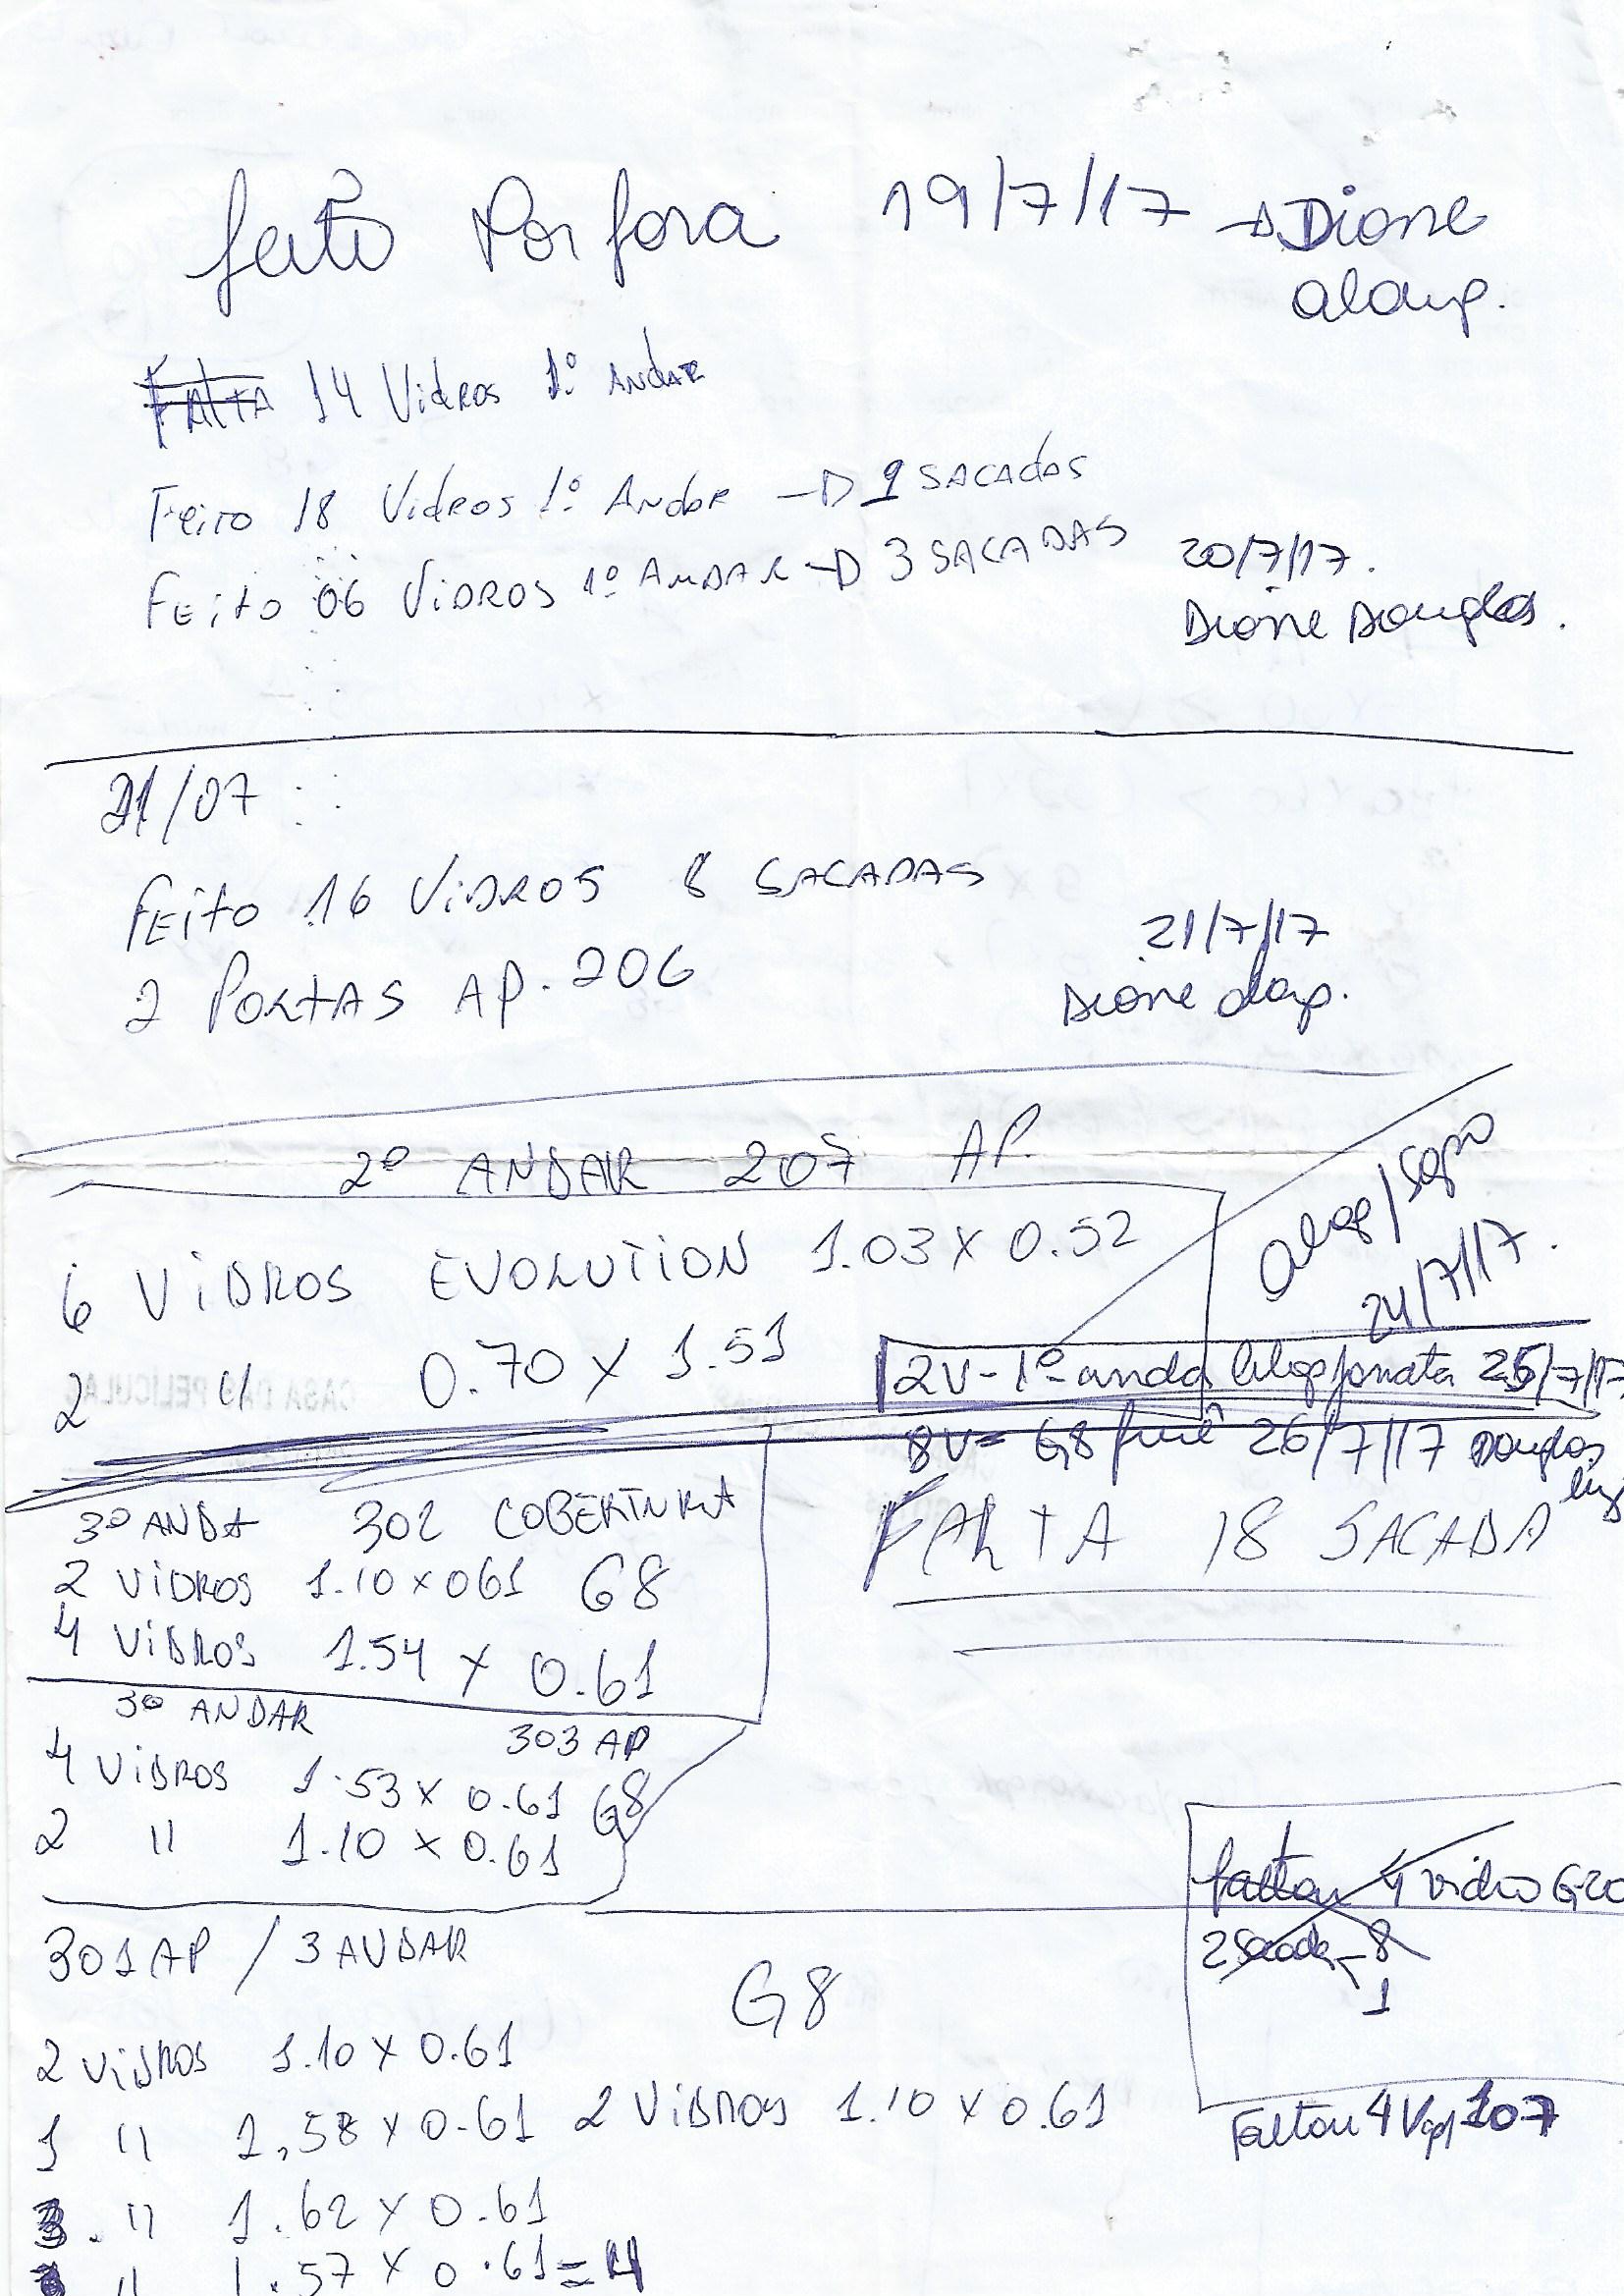 feito Por fora 19/7/17 → Dione
Falta 14 Vidros 1º Andar
Feito 18 Vidros 1º Andar → 9 SACAdas
FEito 06 ViDROS 1º ANDAR → 3 SACADAS 20/7/17.
Dione Douglas.
21/07
FEito 16 ViDROS 8 SACADAS
21/7/17
2 PORTAS AP. 206
Dione
2º ANDAR 207 AP.
6 ViDROS EVOLUTiON 1.03 X 0.52
24/7/17.
2 " 0.70 X 1.51
2V - 1º anda 25/7/17
8V = G8 26/7/17 Douglas
3º ANDA 302 COBERTURA
FALTA 18 SACADA
2 ViDROS 1.10 x 061 G8
4 ViDROS 1.54 x 0.61
3º ANDAR
303 AP
4 ViDROS 1.53 x 0.61 G8
2 " 1.10 x 0.61
faltou 4 vidro G20
301 AP / 3 ANDAR
8
1
G8
2 ViDROS 1.10 X 0.61
1 " 1,58 X 0.61 2 ViDROS 1.10 X 0.61
Faltou 4 107
3. " 1.62 X 0.61
" 1.57 X 0.61 = 4